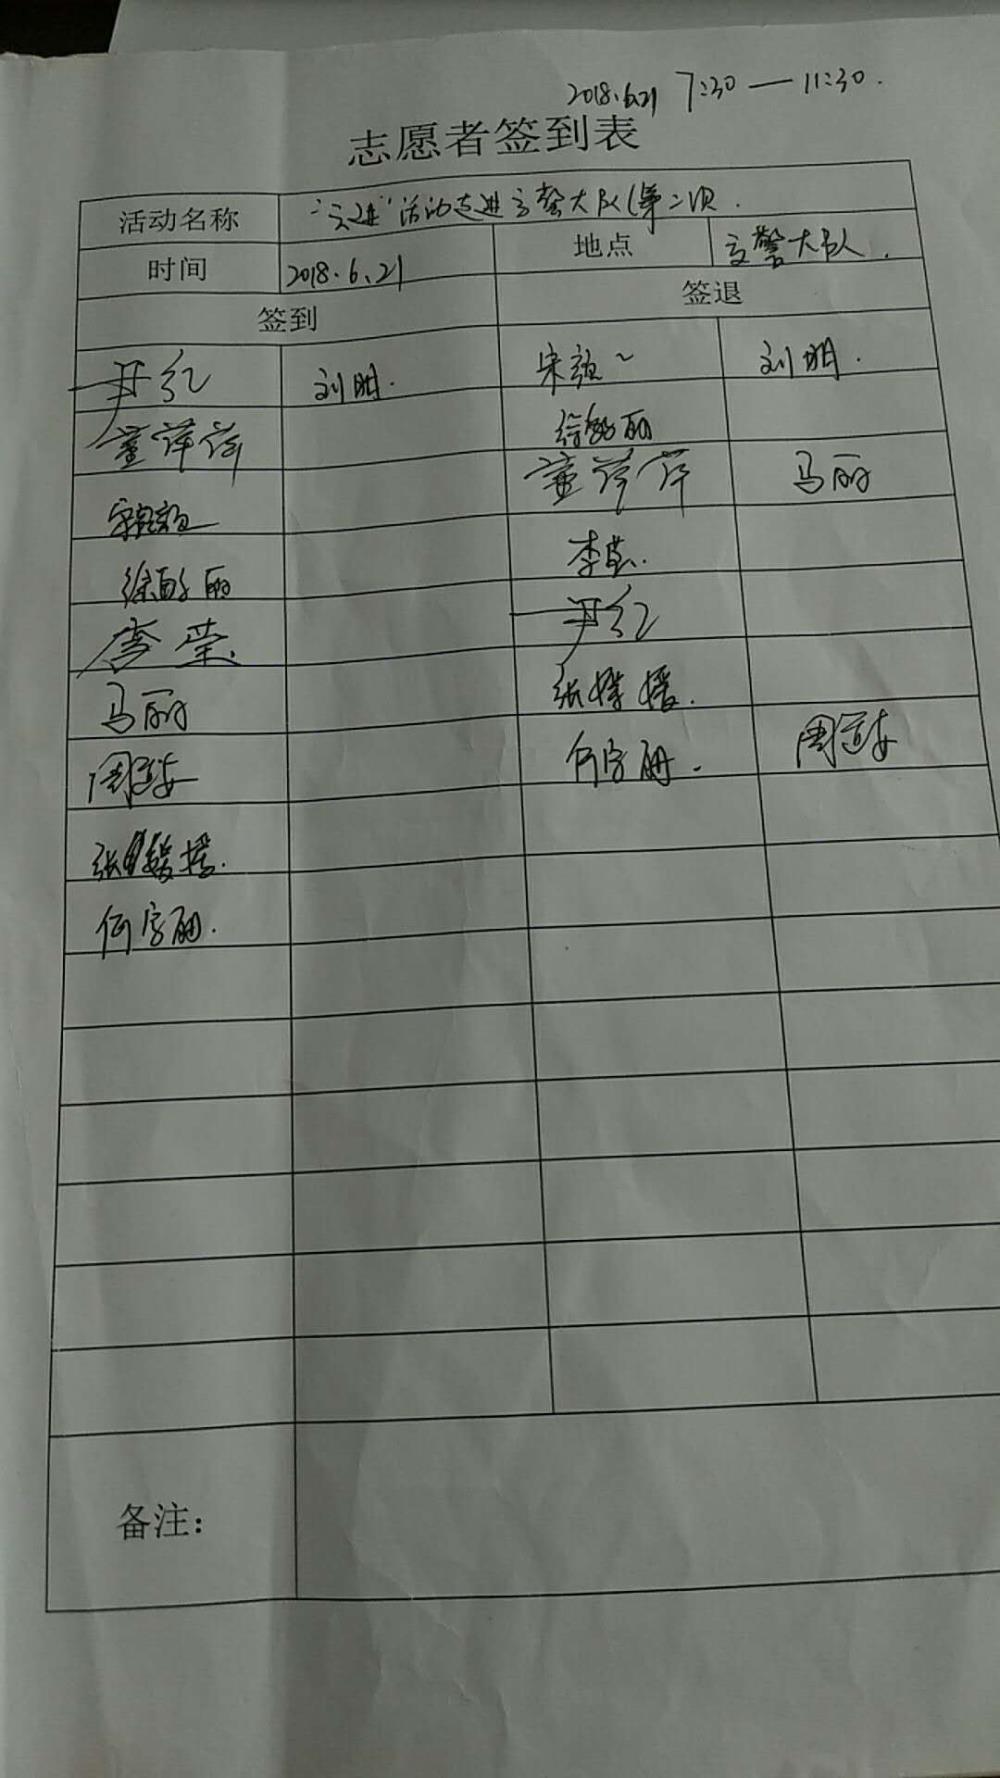 2018.6.21 7:30 — 11:30.
志愿者签到表
活动名称 活动走进交警大队(第二次.
时间 2018.6.21 地点 交警大队.
签到 签退
尹红 刘明. 宋颜 刘明.
董萍萍
董萍萍 马丽
李莹.
徐 丽 尹红
李莹.
马丽 张媛媛.
周 何字丽. 周
张媛媛.
何字丽.
备注: